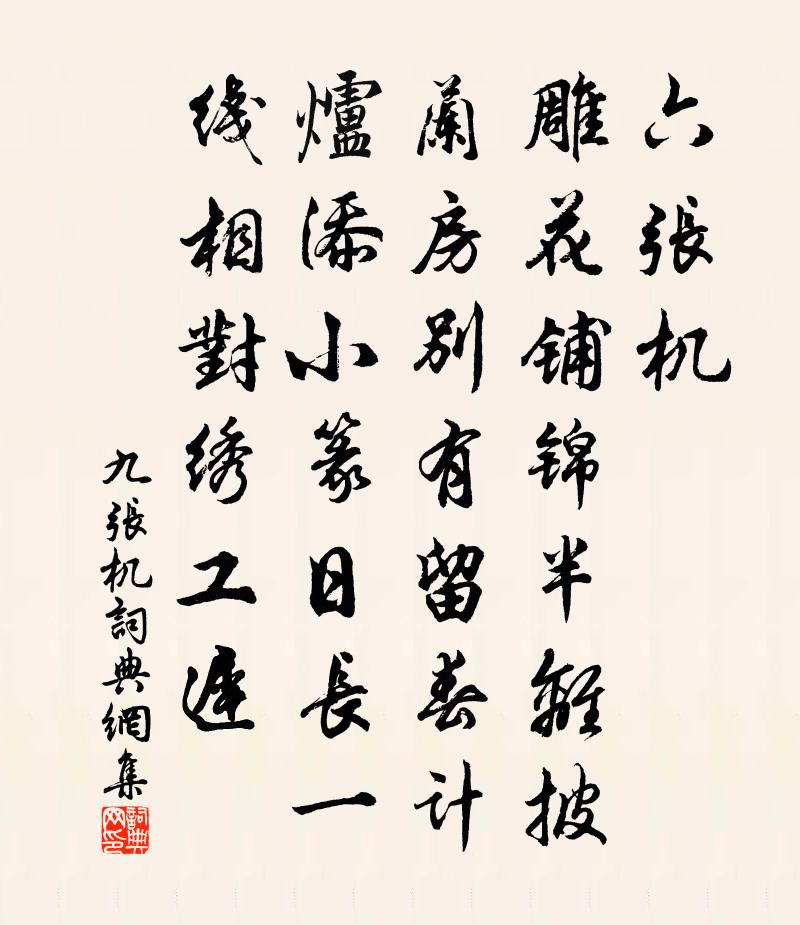 六張机
雕花铺锦半離披
蘭房别有留春計
爐添小篆日長一
线相對绣工遲
九張机詞典網集
詞典網印